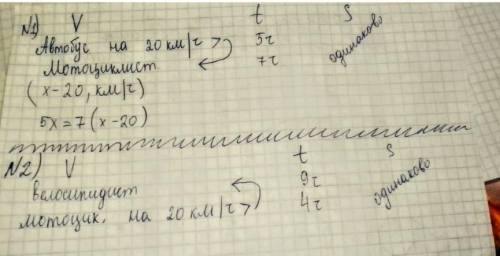 №1) V t S
Автобус на 20 км/ч > 5ч одинаково
Мотоциклист 7ч
(x-20, км/ч)
5x=7(x-20)
№2) V t S
Велосипидист 9ч одинаково
мотоцик. на 20 км/ч > 4ч